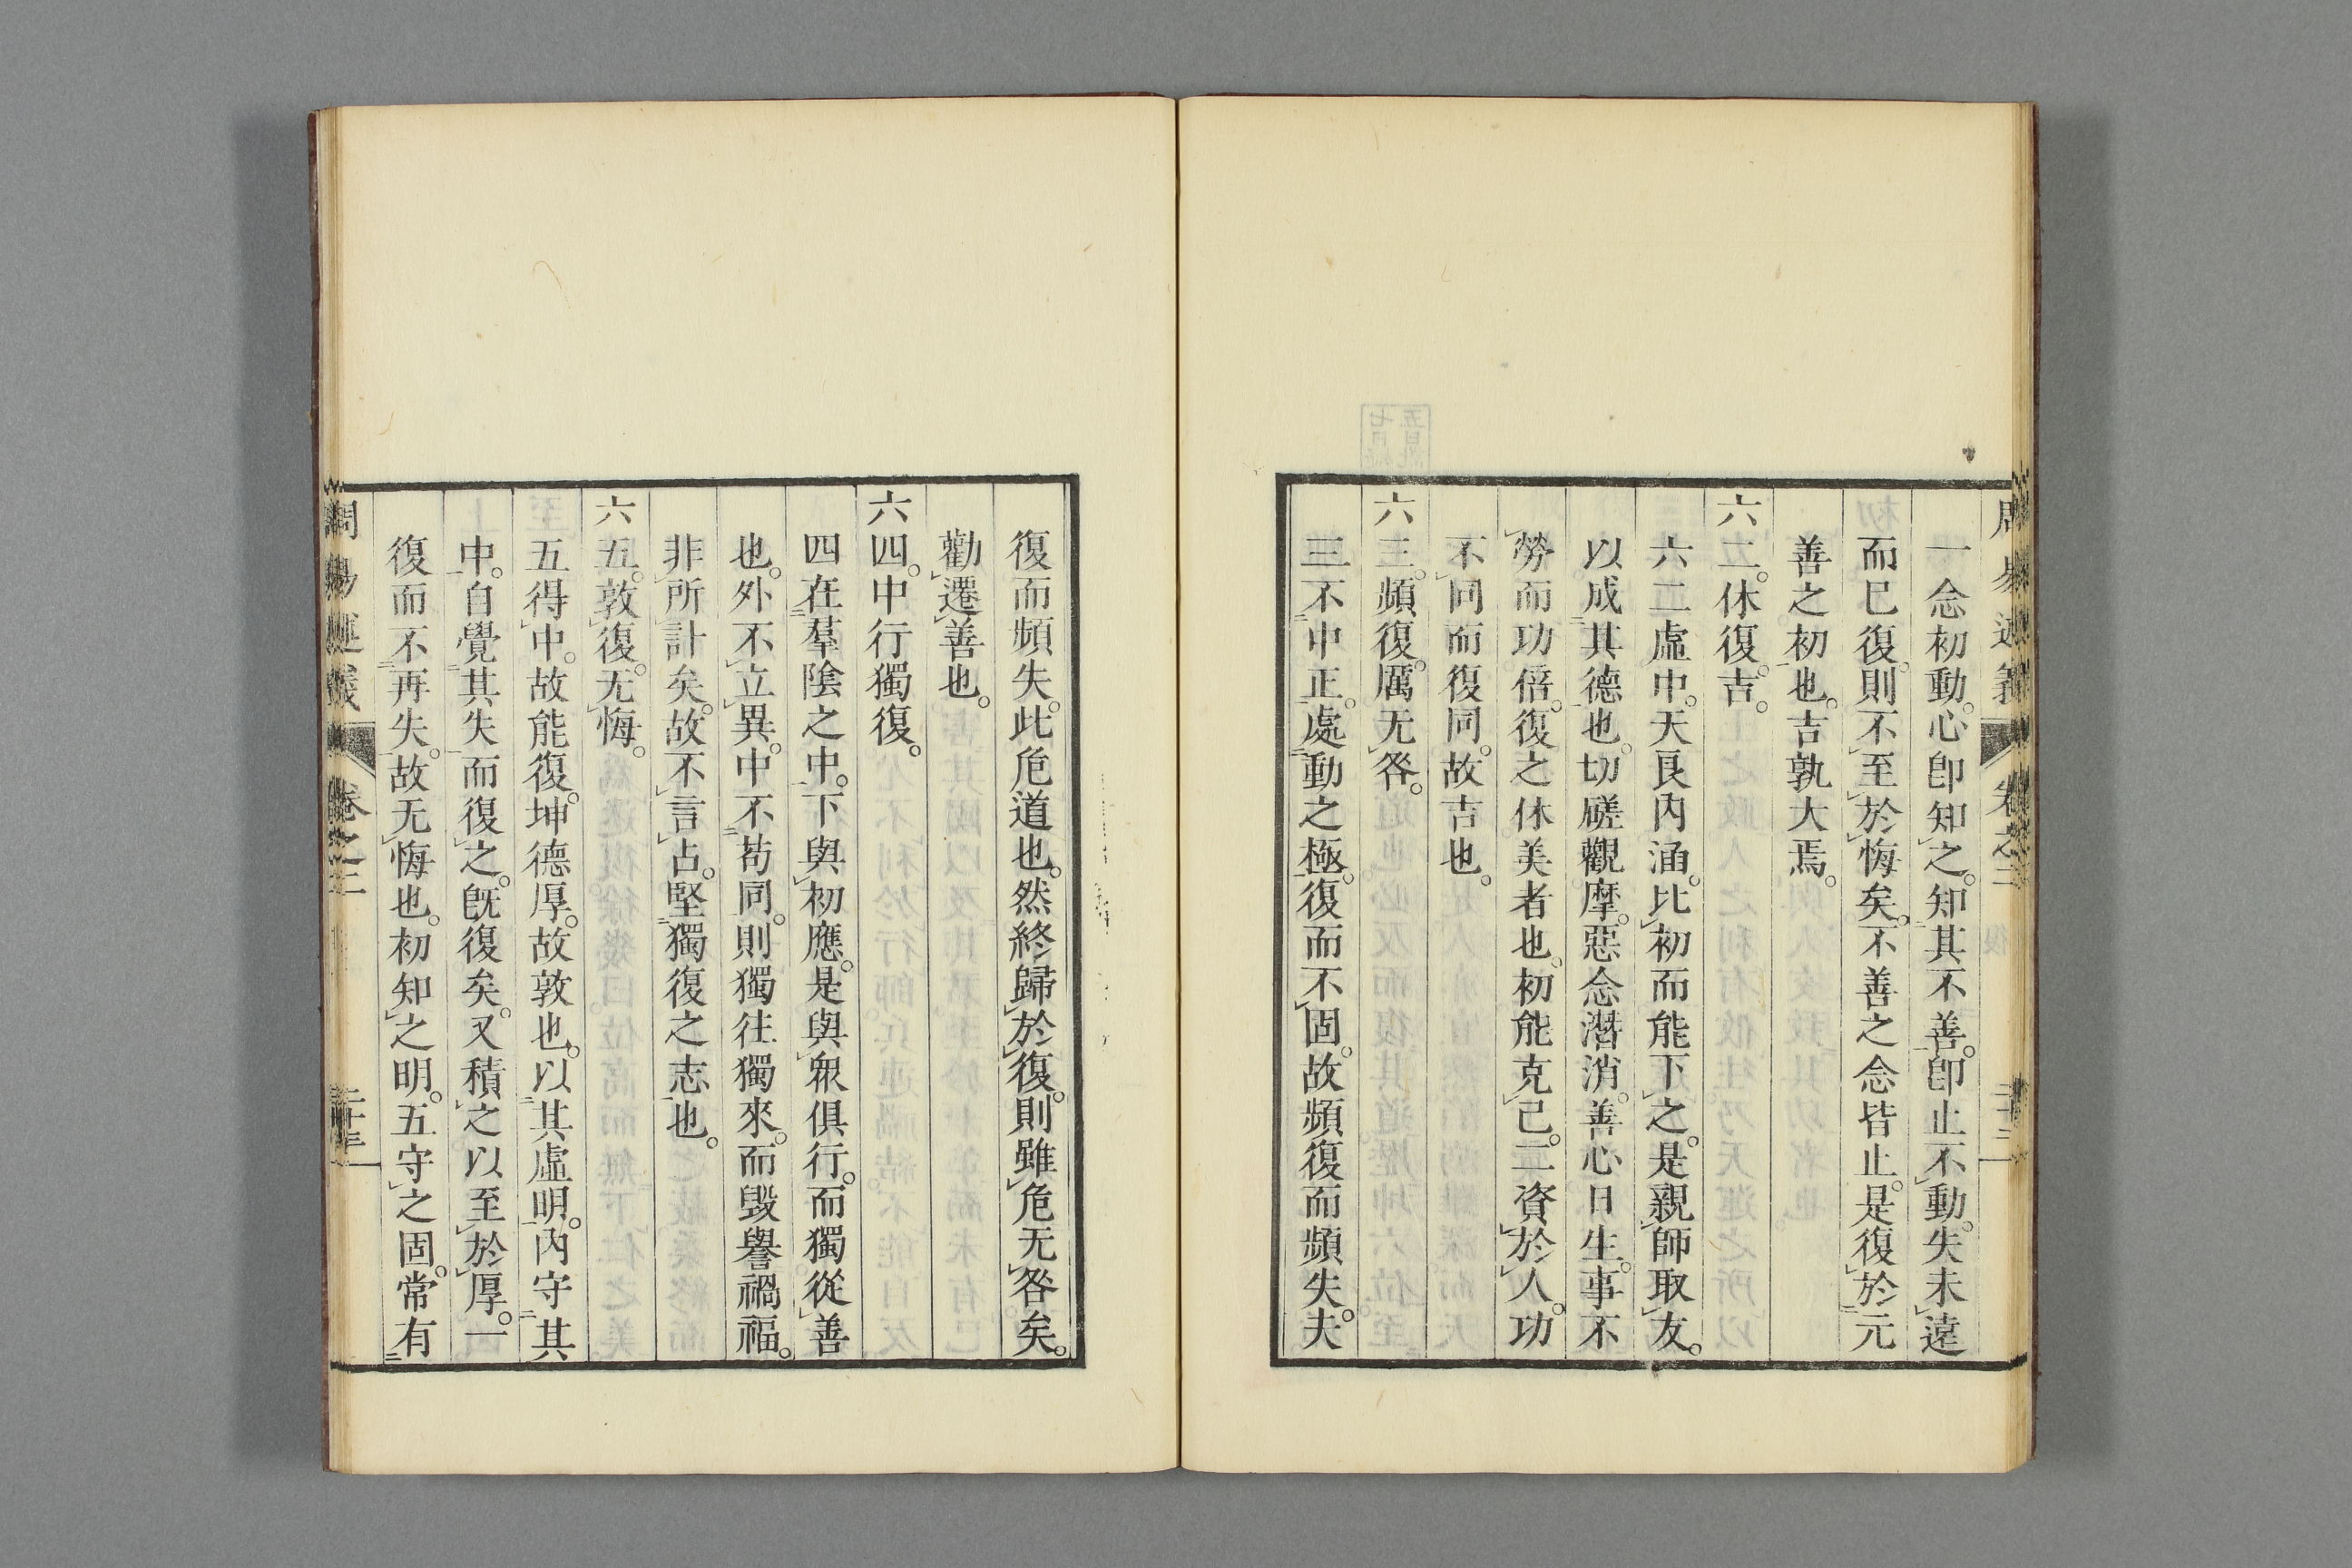 一念初動。心卽知之。知其不善。卽止不動。失未遠
而已復。則不至於悔矣。不善之念皆止。是復於元
善之初也。吉孰大焉。
六二。休復。吉。
六二虛中。天良內涵。比初而能下之。是親師取友。
以成其德也。切磋觀摩。惡念潛消。善心日生。事不
勞而功倍。復之休美者也。初能克己。二資於人。功
不同而復同。故吉也。
六三。頻復。厲无咎。
三不中正。處動之極。復而不固。故頻復而頻失。夫
復而頻失。此危道也。然終歸於復。則雖危无咎矣。
勸遷善也。
六四。中行獨復。
四在羣陰之中。下與初應。是與衆俱行。而獨從善
也。外不立異。中不苟同。則獨往獨來。而毀譽禍福。
非所計矣。故不言占。堅獨復之志也。
六五。敦復。无悔。
五得中。故能復。坤德厚。故敦也。以其虛明。內守其
中。自覺其失而復之。旣復矣。又積之以至於厚。一
復而不再失。故无悔也。初知之明。五守之固。常有
周易述義
卷之三